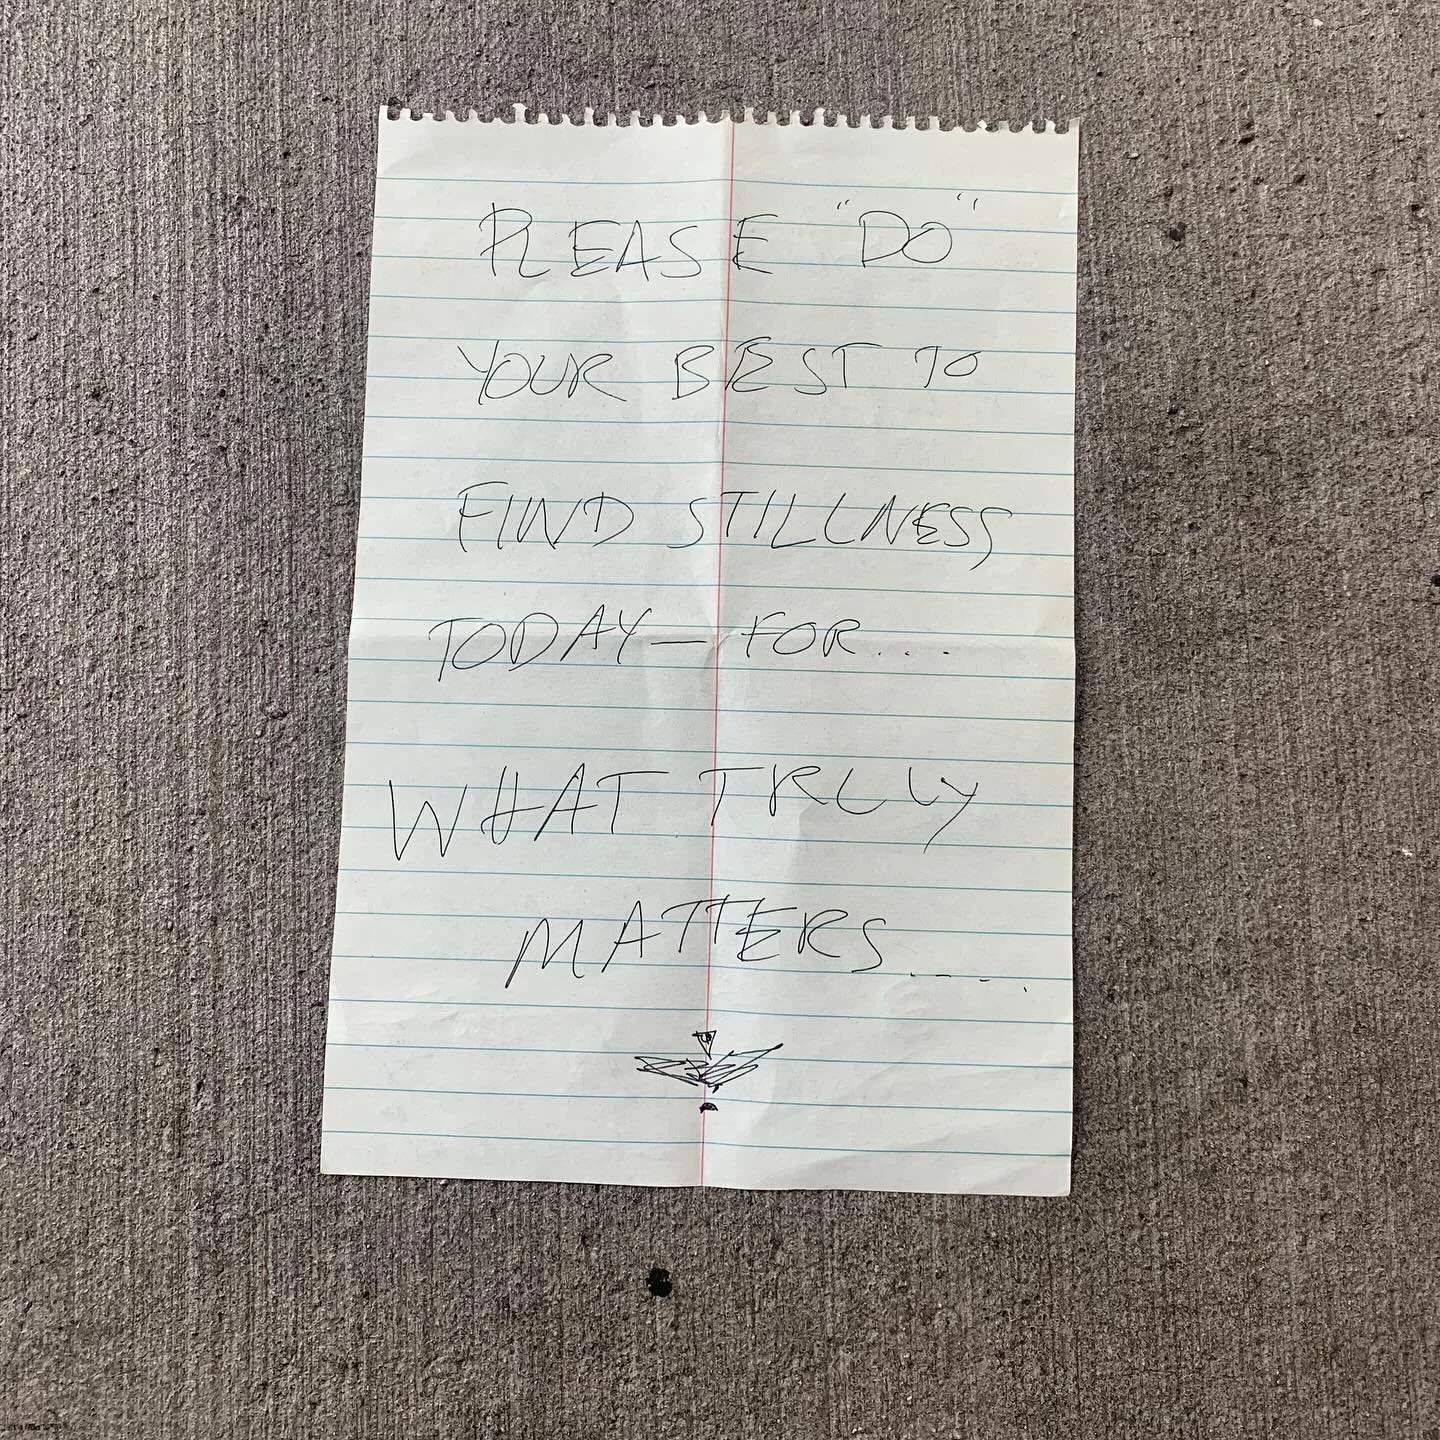 PLEASE "DO"
YOUR BEST TO
FIND STILLNESS
TODAY — FOR....
WHAT TRULY
MATTERS....